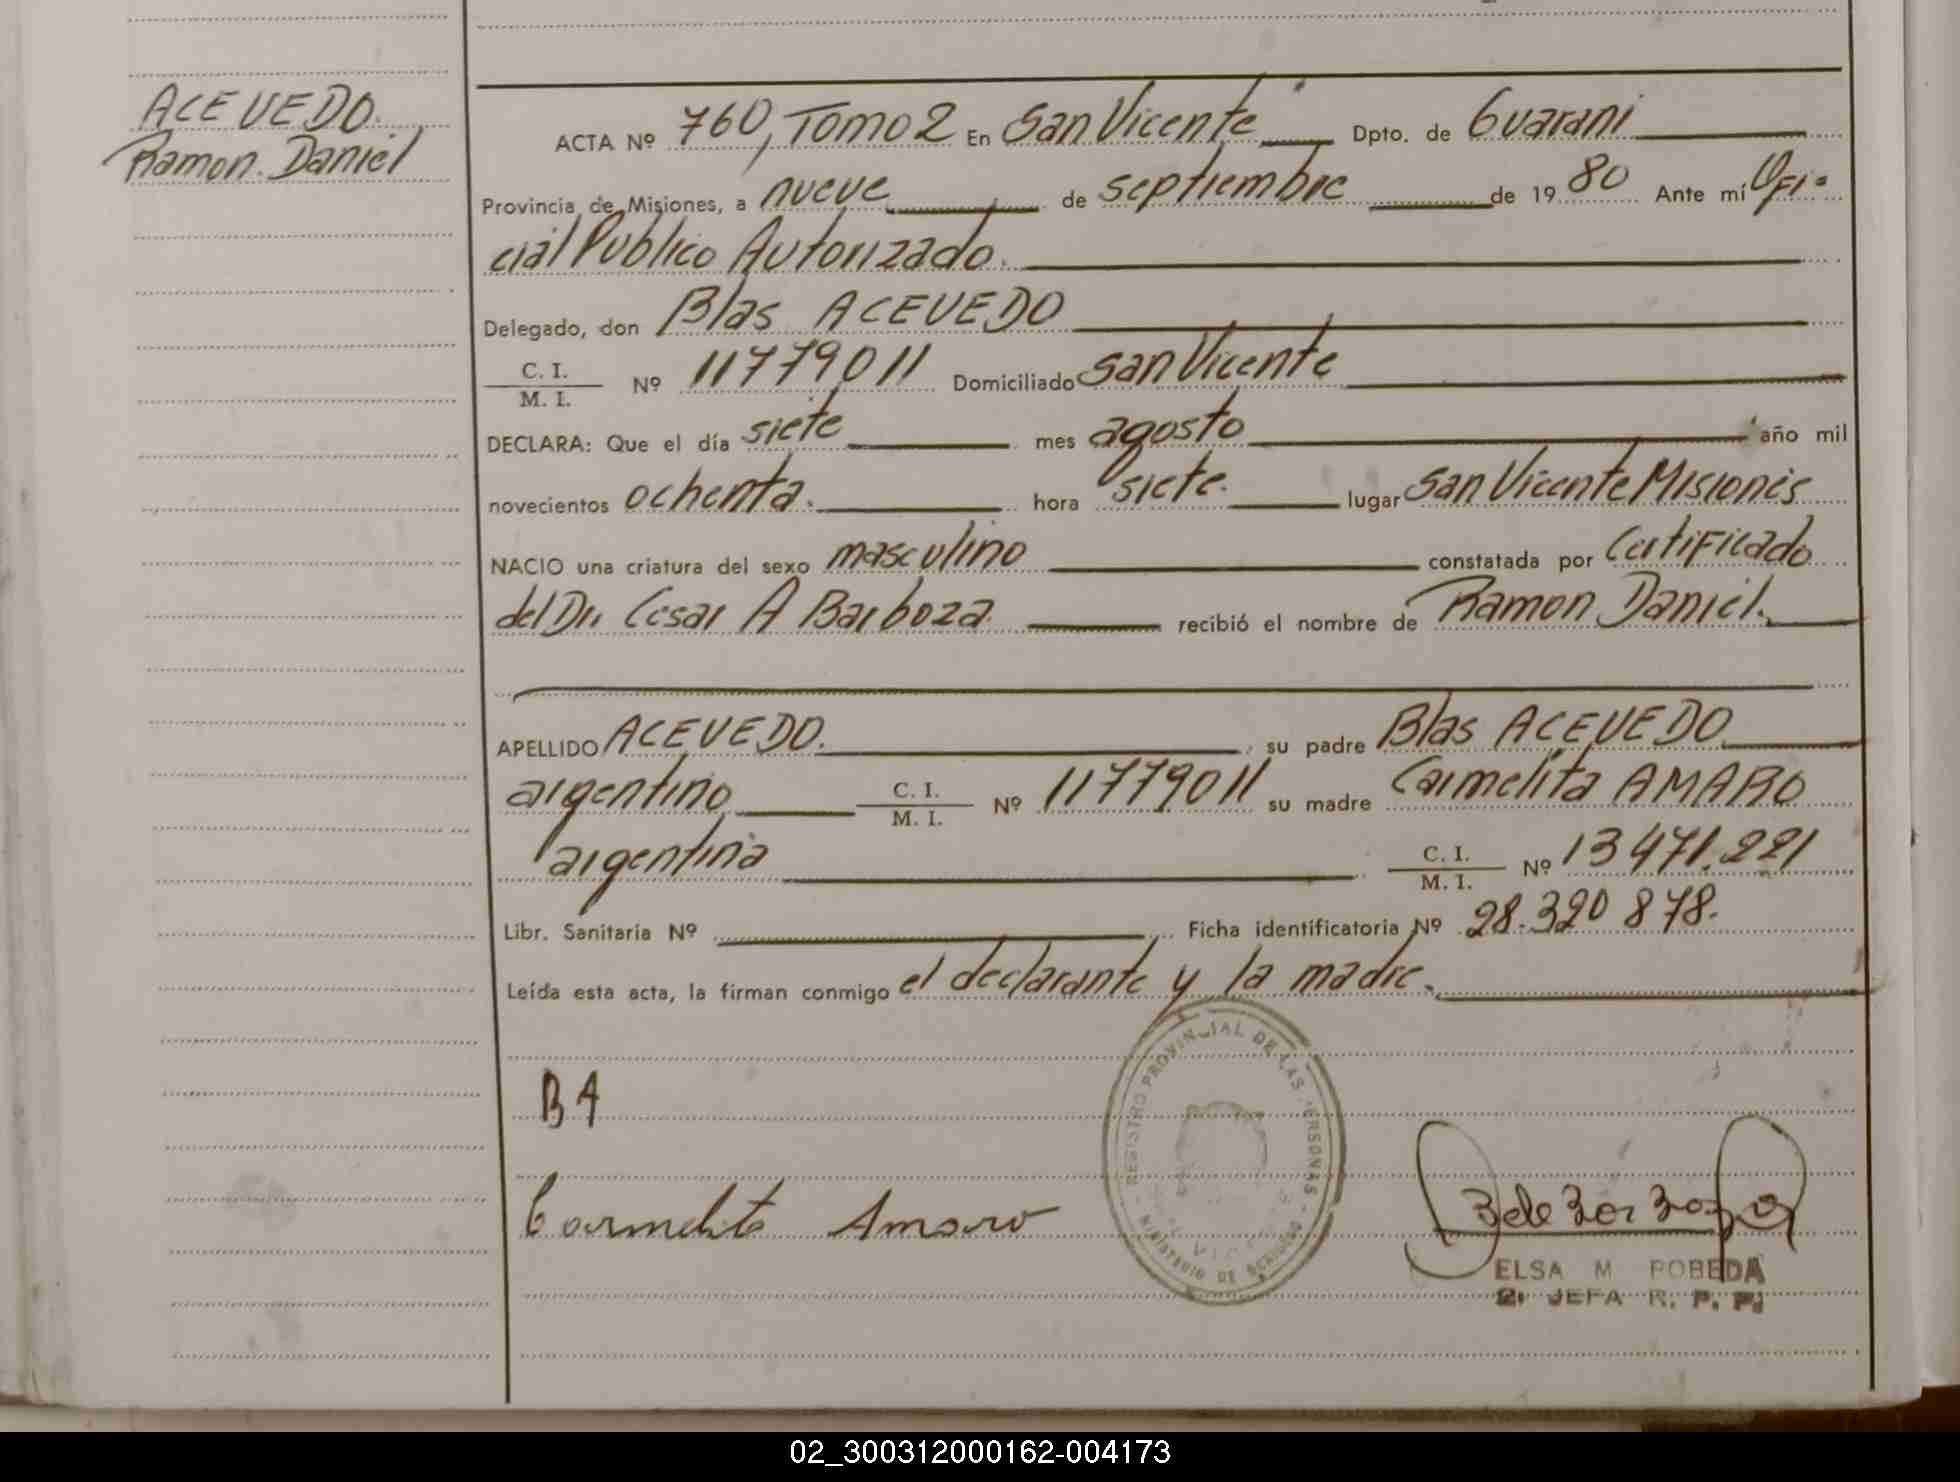 ACEVEDO.
Ramon. Daniel
ACTA Nº 760, Tomo 2 En San Vicente Dpto. de Guarani
Provincia de Misiones, a nueve de septiembre de 1980 Ante mí Ofi-
cial Publico Autorizado.
Delegado, don Blas ACEVEDO
C. I.
M. I. Nº 11779011 Domiciliado San Vicente
DECLARA: Que el día siete mes agosto año mil
novecientos ochenta. hora siete. lugar San Vicente Misiones
NACIO una criatura del sexo masculino constatada por Certificado
del Dr. Cesar A Barboza recibió el nombre de Ramon Daniel.
APELLIDO ACEVEDO. su padre Blas ACEVEDO
argentino C. I.
M. I. Nº 11779011 su madre Carmelita AMARO
argentina C. I.
M. I. Nº 13471.221
Libr. Sanitaria Nº Ficha identificatoria Nº 28.320 878.
Leída esta acta, la firman conmigo el declarante y la madre.
REGISTRO PROVINCIAL DE LAS PERSONAS
MINISTERIO DE GOBIERNO
B A
Carmelita Amaro
ELSA M POBEDA
2ª JEFA R. P. P.
02_300312000162-004173